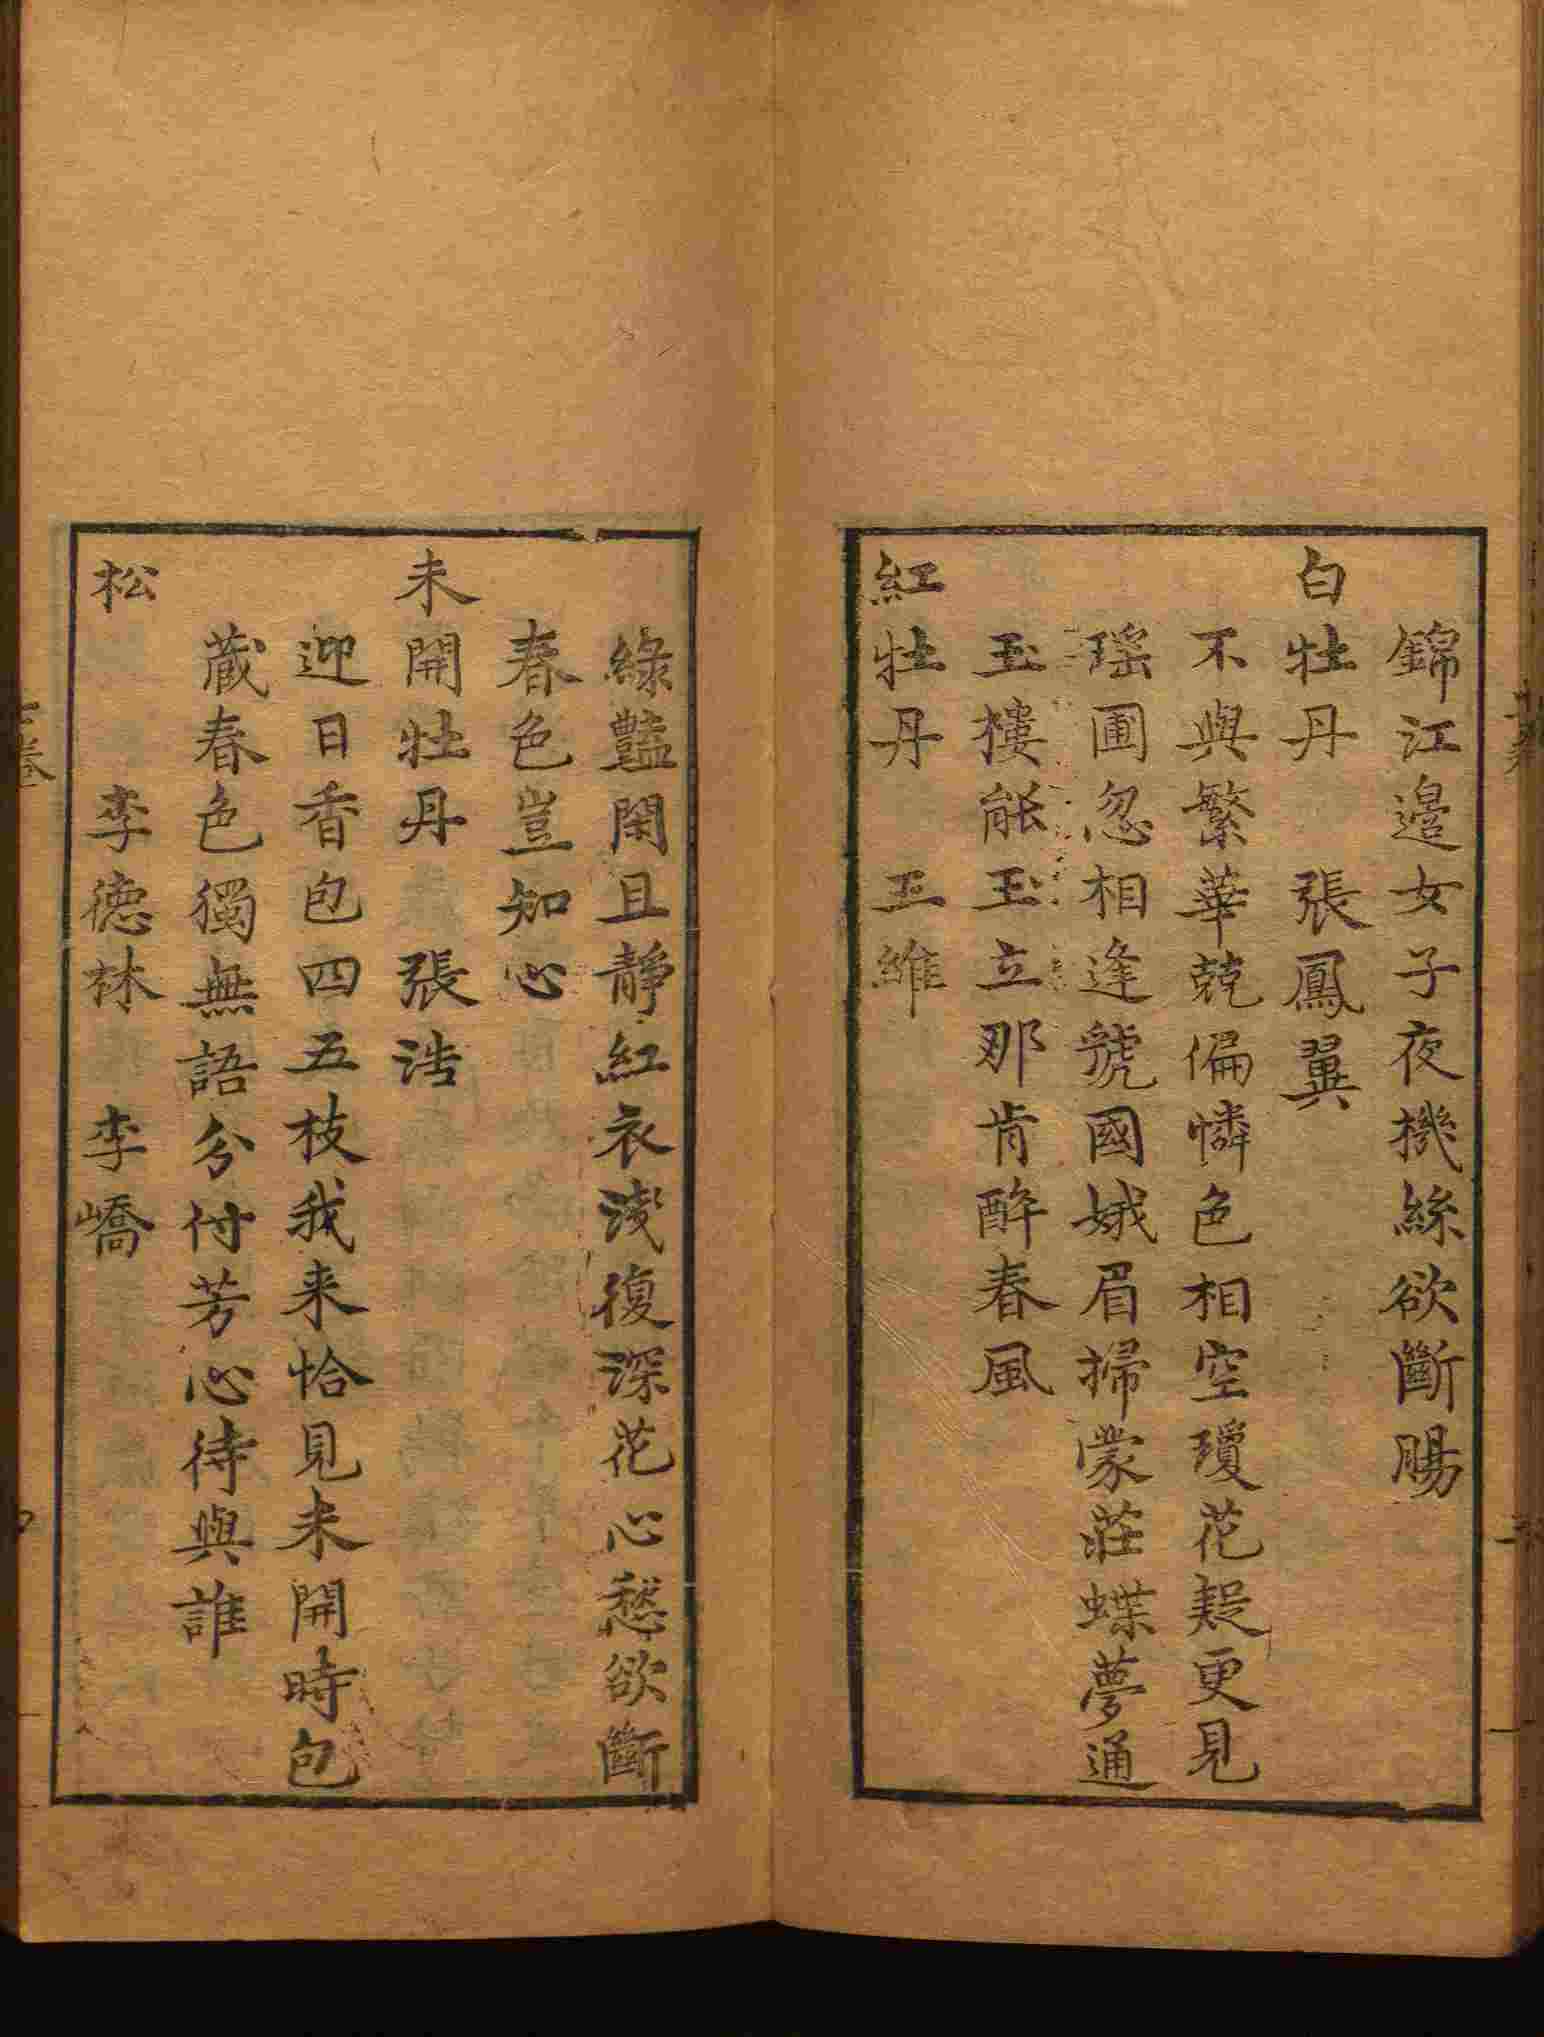 錦江邉女子夜機絲欲斷腸
白牡丹　張鳳翼
不與繁華兢偏憐色相空瓊花疑更見
瑶圃忽相逢虢國娥眉掃蒙莊蝶夢通
玉樓能玉立那肯醉春風
紅牡丹　王維
綠豔閑且靜紅衣淺復深花心愁欲斷
春色豈知心
未開牡丹　張浩
迎日香包四五枝我来恰見未開時包
蔵春色獨無語分付芳心待與誰
松　李德林　李嶠